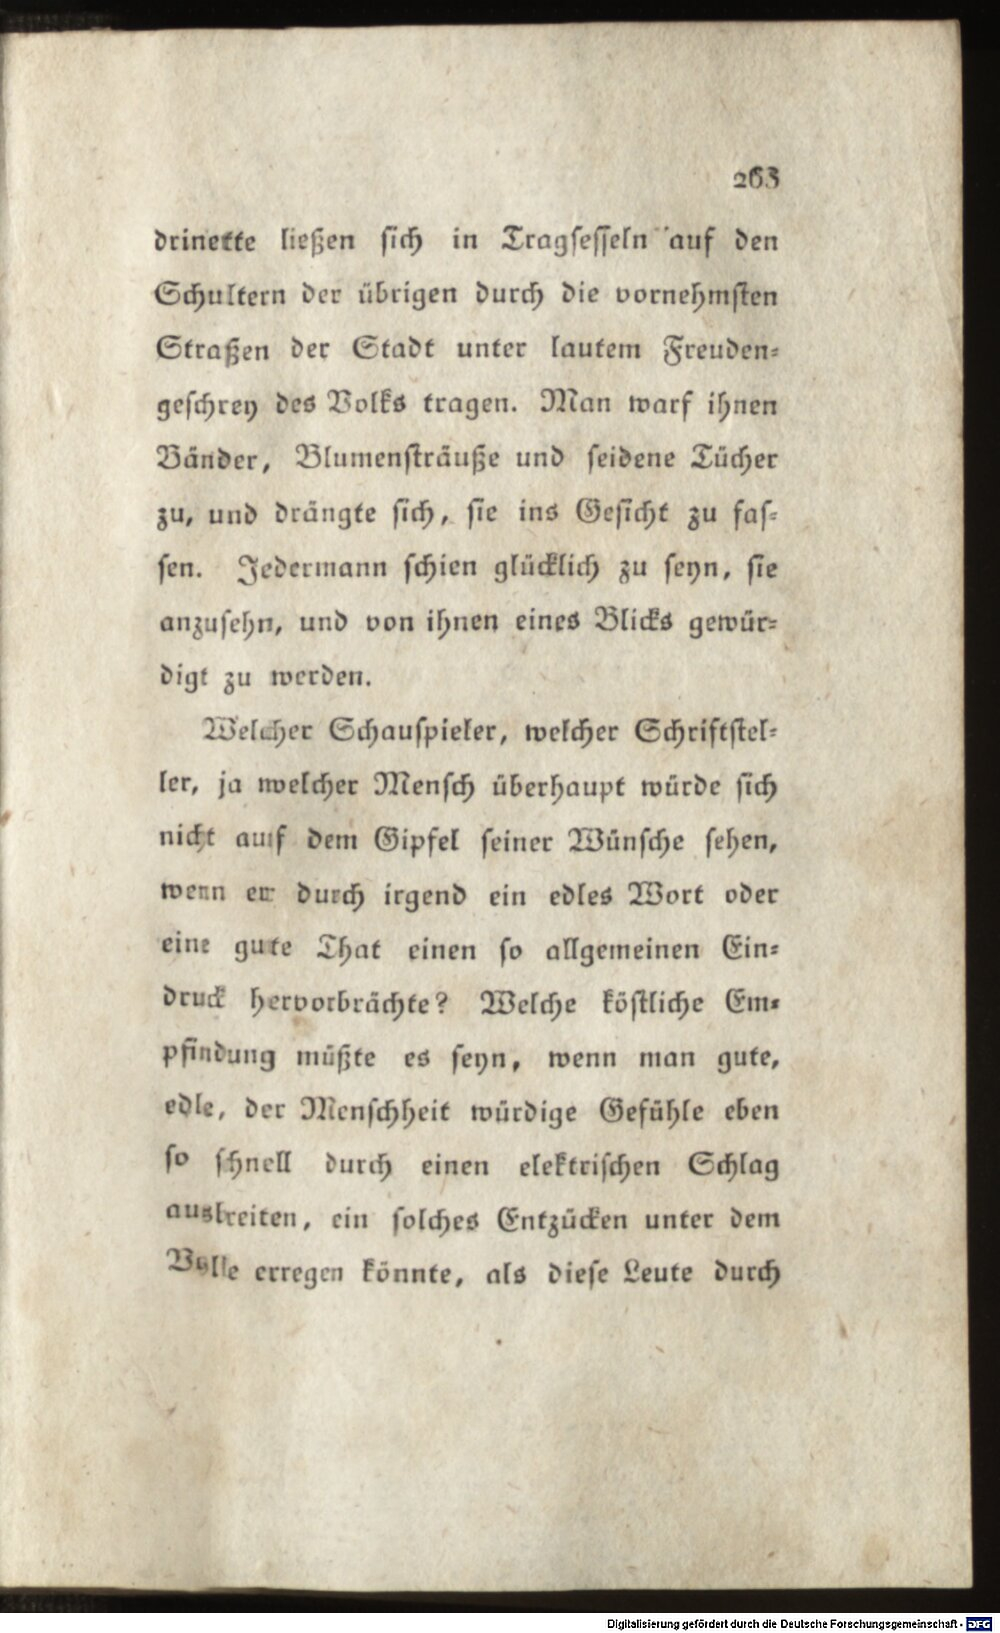 263
drinette ließen sich in Tragsesseln auf den
Schultern der übrigen durch die vornehmsten
Straßen der Stadt unter lautem Freuden-
geschrey des Volks tragen. Man warf ihnen
Bänder, Blumensträuße und seidene Tücher
zu, und drängte sich, sie ins Gesicht zu fas-
sen. Jedermann schien glücklich zu seyn, sie
anzusehn, und von ihnen eines Blicks gewür-
digt zu werden.
Welcher Schauspieler, welcher Schriftstel-
ler, ja welcher Mensch überhaupt würde sich
nicht auf dem Gipfel seiner Wünsche sehen,
wenn er durch irgend ein edles Wort oder
eine gute That einen so allgemeinen Ein-
druck hervorbrächte? Welche köstliche Em-
pfindung müßte es seyn, wenn man gute,
edle, der Menschheit würdige Gefühle eben
so schnell durch einen elektrischen Schlag
ausbreiten, ein solches Entzücken unter dem
Volke erregen könnte, als diese Leute durch
Digitalisierung gefördert durch die Deutsche Forschungsgemeinschaft - DFG